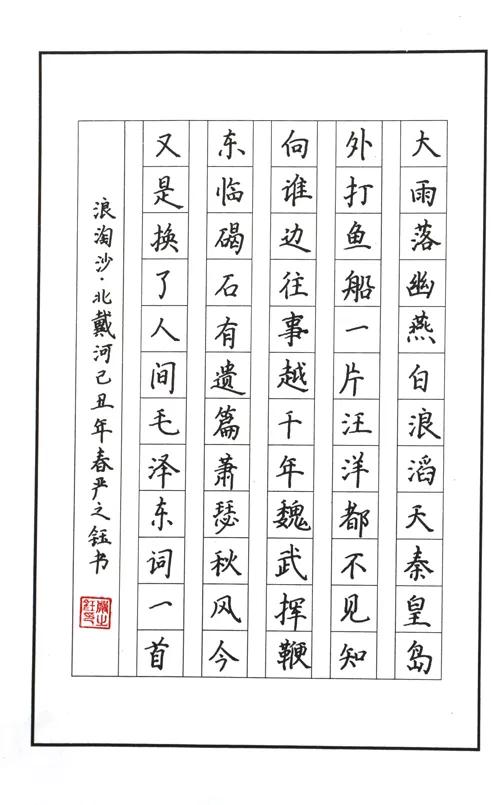 大雨落幽燕白浪滔天秦皇岛
外打鱼船一片汪洋都不见知
向谁边往事越千年魏武挥鞭
东临碣石有遗篇萧瑟秋风今
又是换了人间毛泽东词一首
浪淘沙·北戴河己丑年春严之钰书